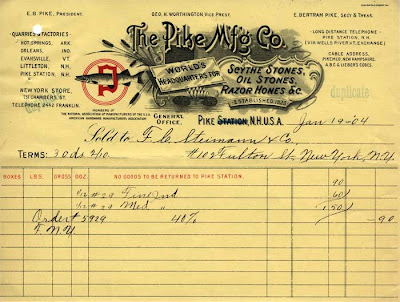 E.B. PIKE, PRESIDENT.
GEO. H. WORTHINGTON, VICE PREST.
E. BERTRAM PIKE, SECY & TREAS.
The Pike Mfg. Co.
QUARRIES & FACTORIES
HOT SPRINGS, ARK.
ORLEANS, IND.
EVANSVILLE, VT.
LITTLETON, N.H.
PIKE STATION, N.H.
NEW YORK STORE,
151 CHAMBERS ST.
TELEPHONE 2442 FRANKLIN.
WORLD'S
HEADQUARTERS FOR
SCYTHE STONES,
OIL STONES,
RAZOR HONES &C.
ESTABLISHED 1823
LONG DISTANCE TELEPHONE
PIKE STATION, N.H.
(VIA WELLS RIVER, VT. EXCHANGE)
CABLE ADDRESS,
PIKEMCO, NEW HAMPSHIRE.
A,B,C & LIEBER'S CODES.
duplicate
MEMBERS OF
THE NATIONAL ASSOCIATION OF MANUFACTURERS OF THE U.S.A.
AMERICAN HARDWARE MANUFACTURERS ASSOCIATION
GENERAL
OFFICE,
PIKE STATION, N.H. U.S.A. Jan 19-04
Sold to F. C. Steimann & Co.
TERMS: 30 ds 2/10 #102 Fulton St., New York, N.Y.
BOXES LBS. GROSS DOZ. NO GOODS TO BE RETURNED TO PIKE STATION.
#29 Fine 2nd 90
#29 Med " 60
Order # 5929 40% 1 50 -90
F. N.Y.